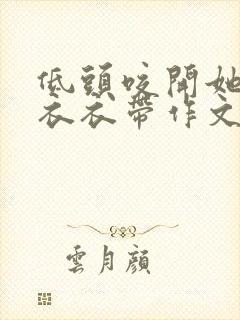 低頭咬開她
衣衣帶作文
雲月顔